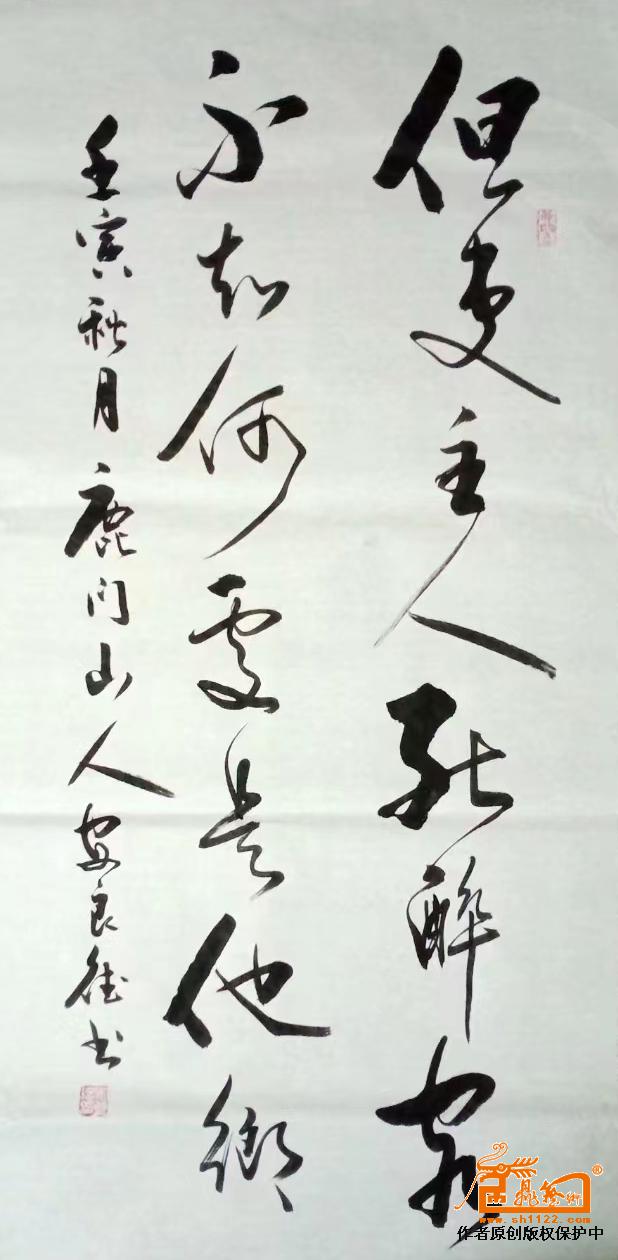 但使主人能醉客
不知何處是他鄉
壬寅秋月鹿门山人安良书
www.sh1122.com
作者原创版权保护中